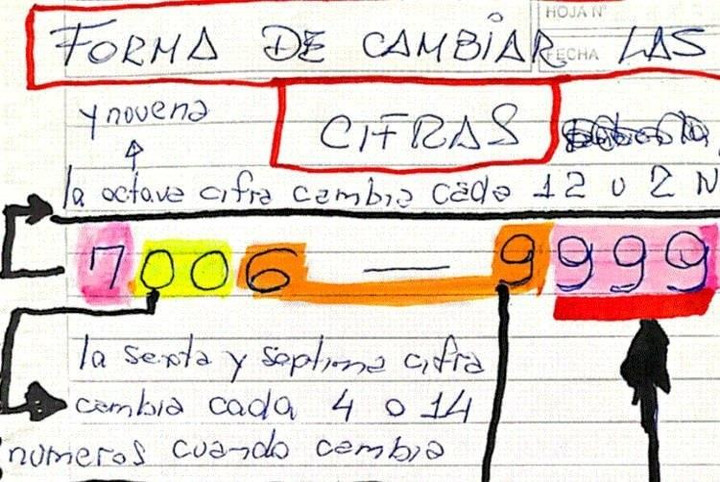 HOJA Nº
FORMA DE CAMBIAR LAS
FECHA
y novena
CIFRAS
la octava cifra cambia cada 12 o 2 N
7006 — 9999
la sexta y septima cifra
cambia cada 4 o 14
numeros cuando cambia